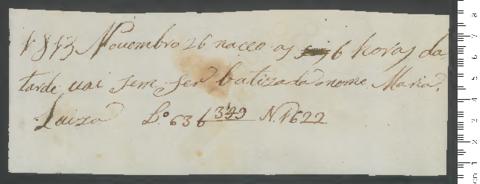 1813 Novembro 26 naceo as 6 horas da
tarde vai sem ser batizada o nome Maria
Luiza Lº 636 343 N. 1622